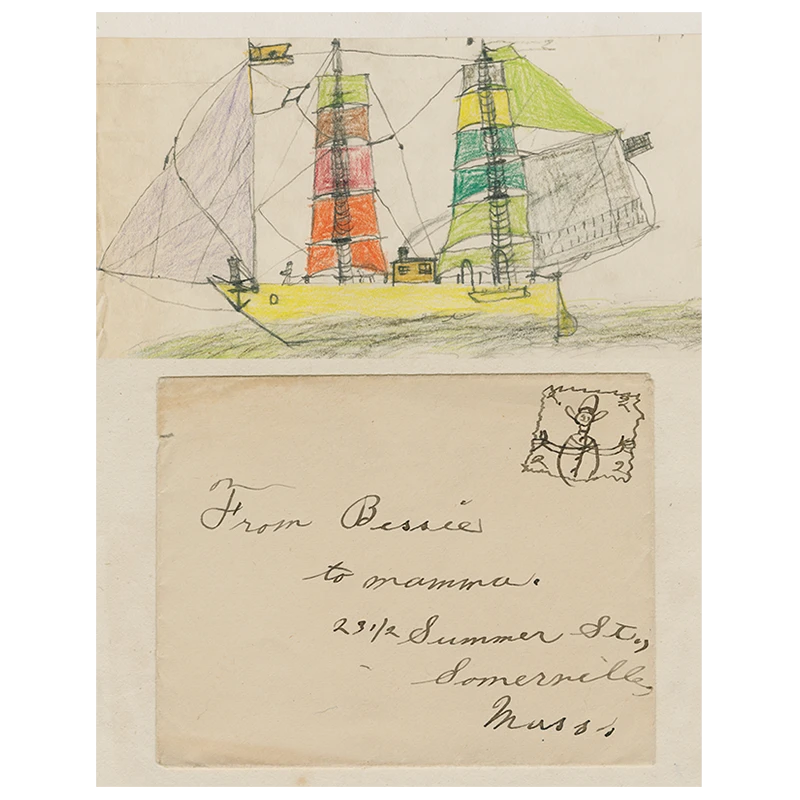 2 2
2 2
From Bessie
to mamma.
23 1/2 Summer St.,
Somerville,
Mass.